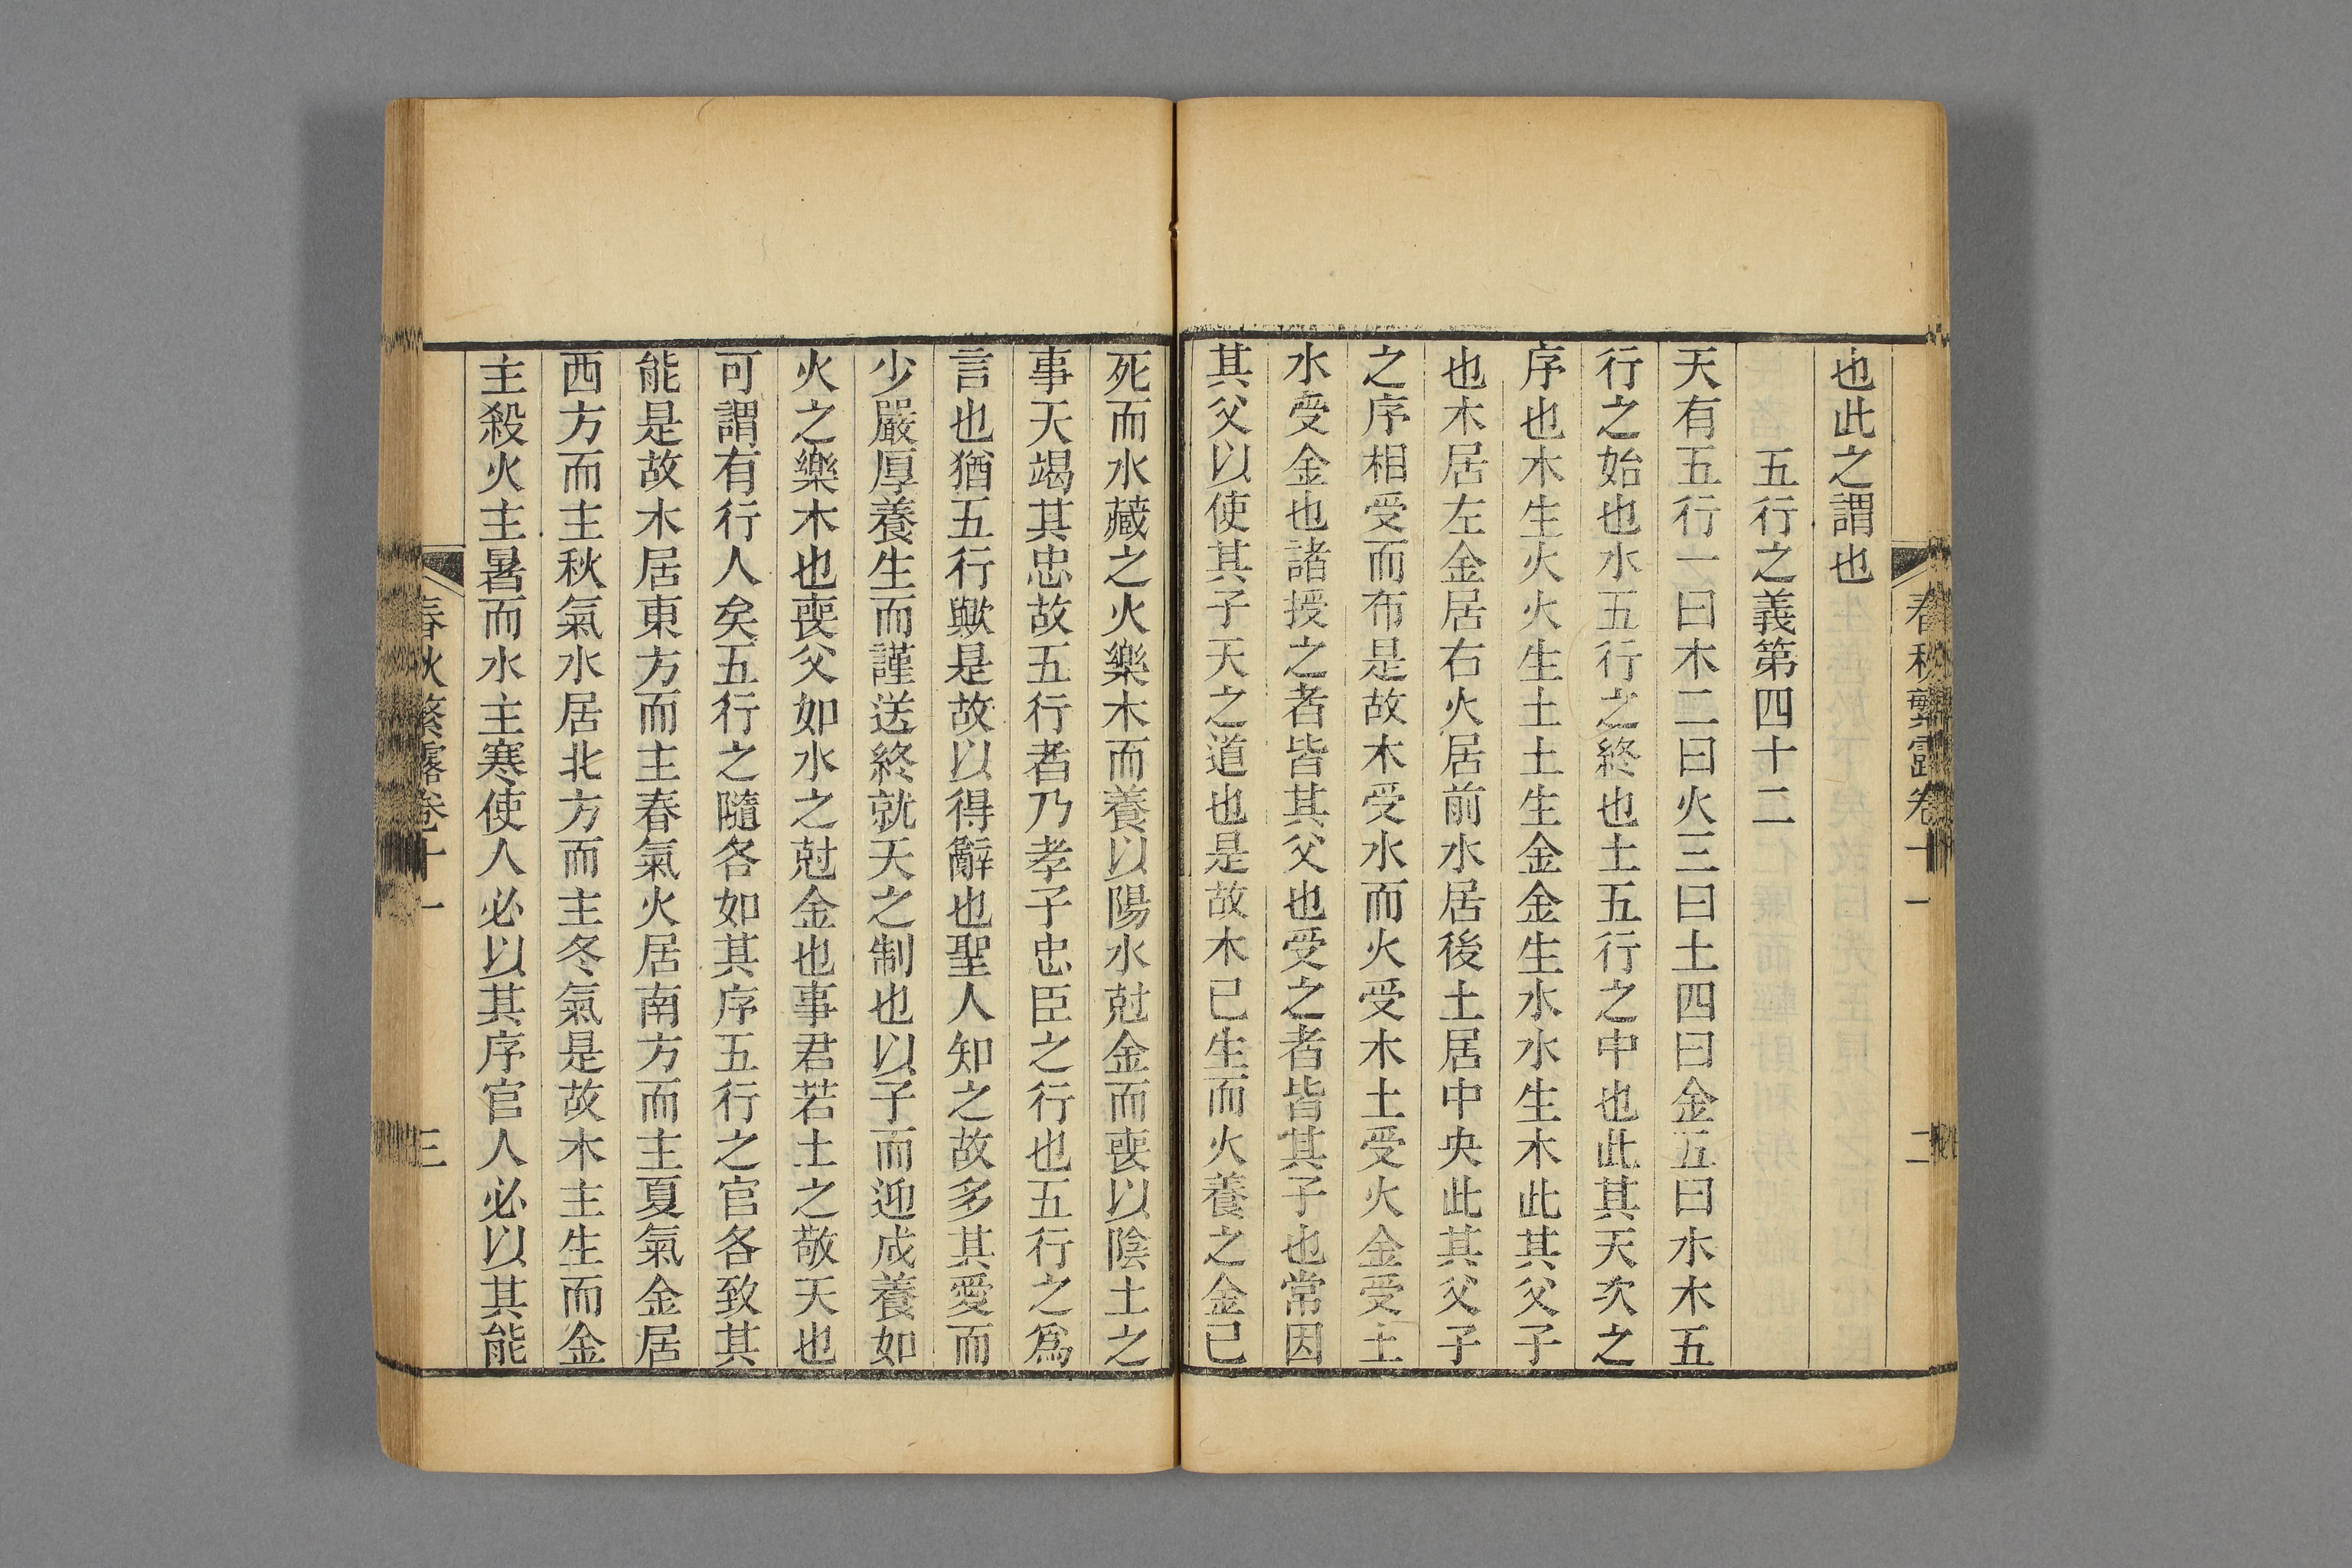 春秋繁露卷十一
二
也此之謂也
五行之義第四十二
天有五行一曰木二曰火三曰土四曰金五曰水木五
行之始也水五行之終也土五行之中也此其天次之
序也木生火火生土土生金金生水水生木此其父子
也木居左金居右火居前水居後土居中央此其父子
之序相受而布是故木受水而火受木土受火金受土
水受金也諸授之者皆其父也受之者皆其子也常因
其父以使其子天之道也是故木已生而火養之金已
死而水藏之火樂木而養以陽水尅金而喪以陰土之
事天竭其忠故五行者乃孝子忠臣之行也五行之爲
言也猶五行歟是故以得辭也聖人知之故多其愛而
少嚴厚養生而謹送終就天之制也以子而迎成養如
火之樂木也喪父如水之尅金也事君若土之敬天也
可謂有行人矣五行之隨各如其序五行之官各致其
能是故木居東方而主春氣火居南方而主夏氣金居
西方而主秋氣水居北方而主冬氣是故木主生而金
主殺火主暑而水主寒使人必以其序官人必以其能
春秋繁露卷十一
三